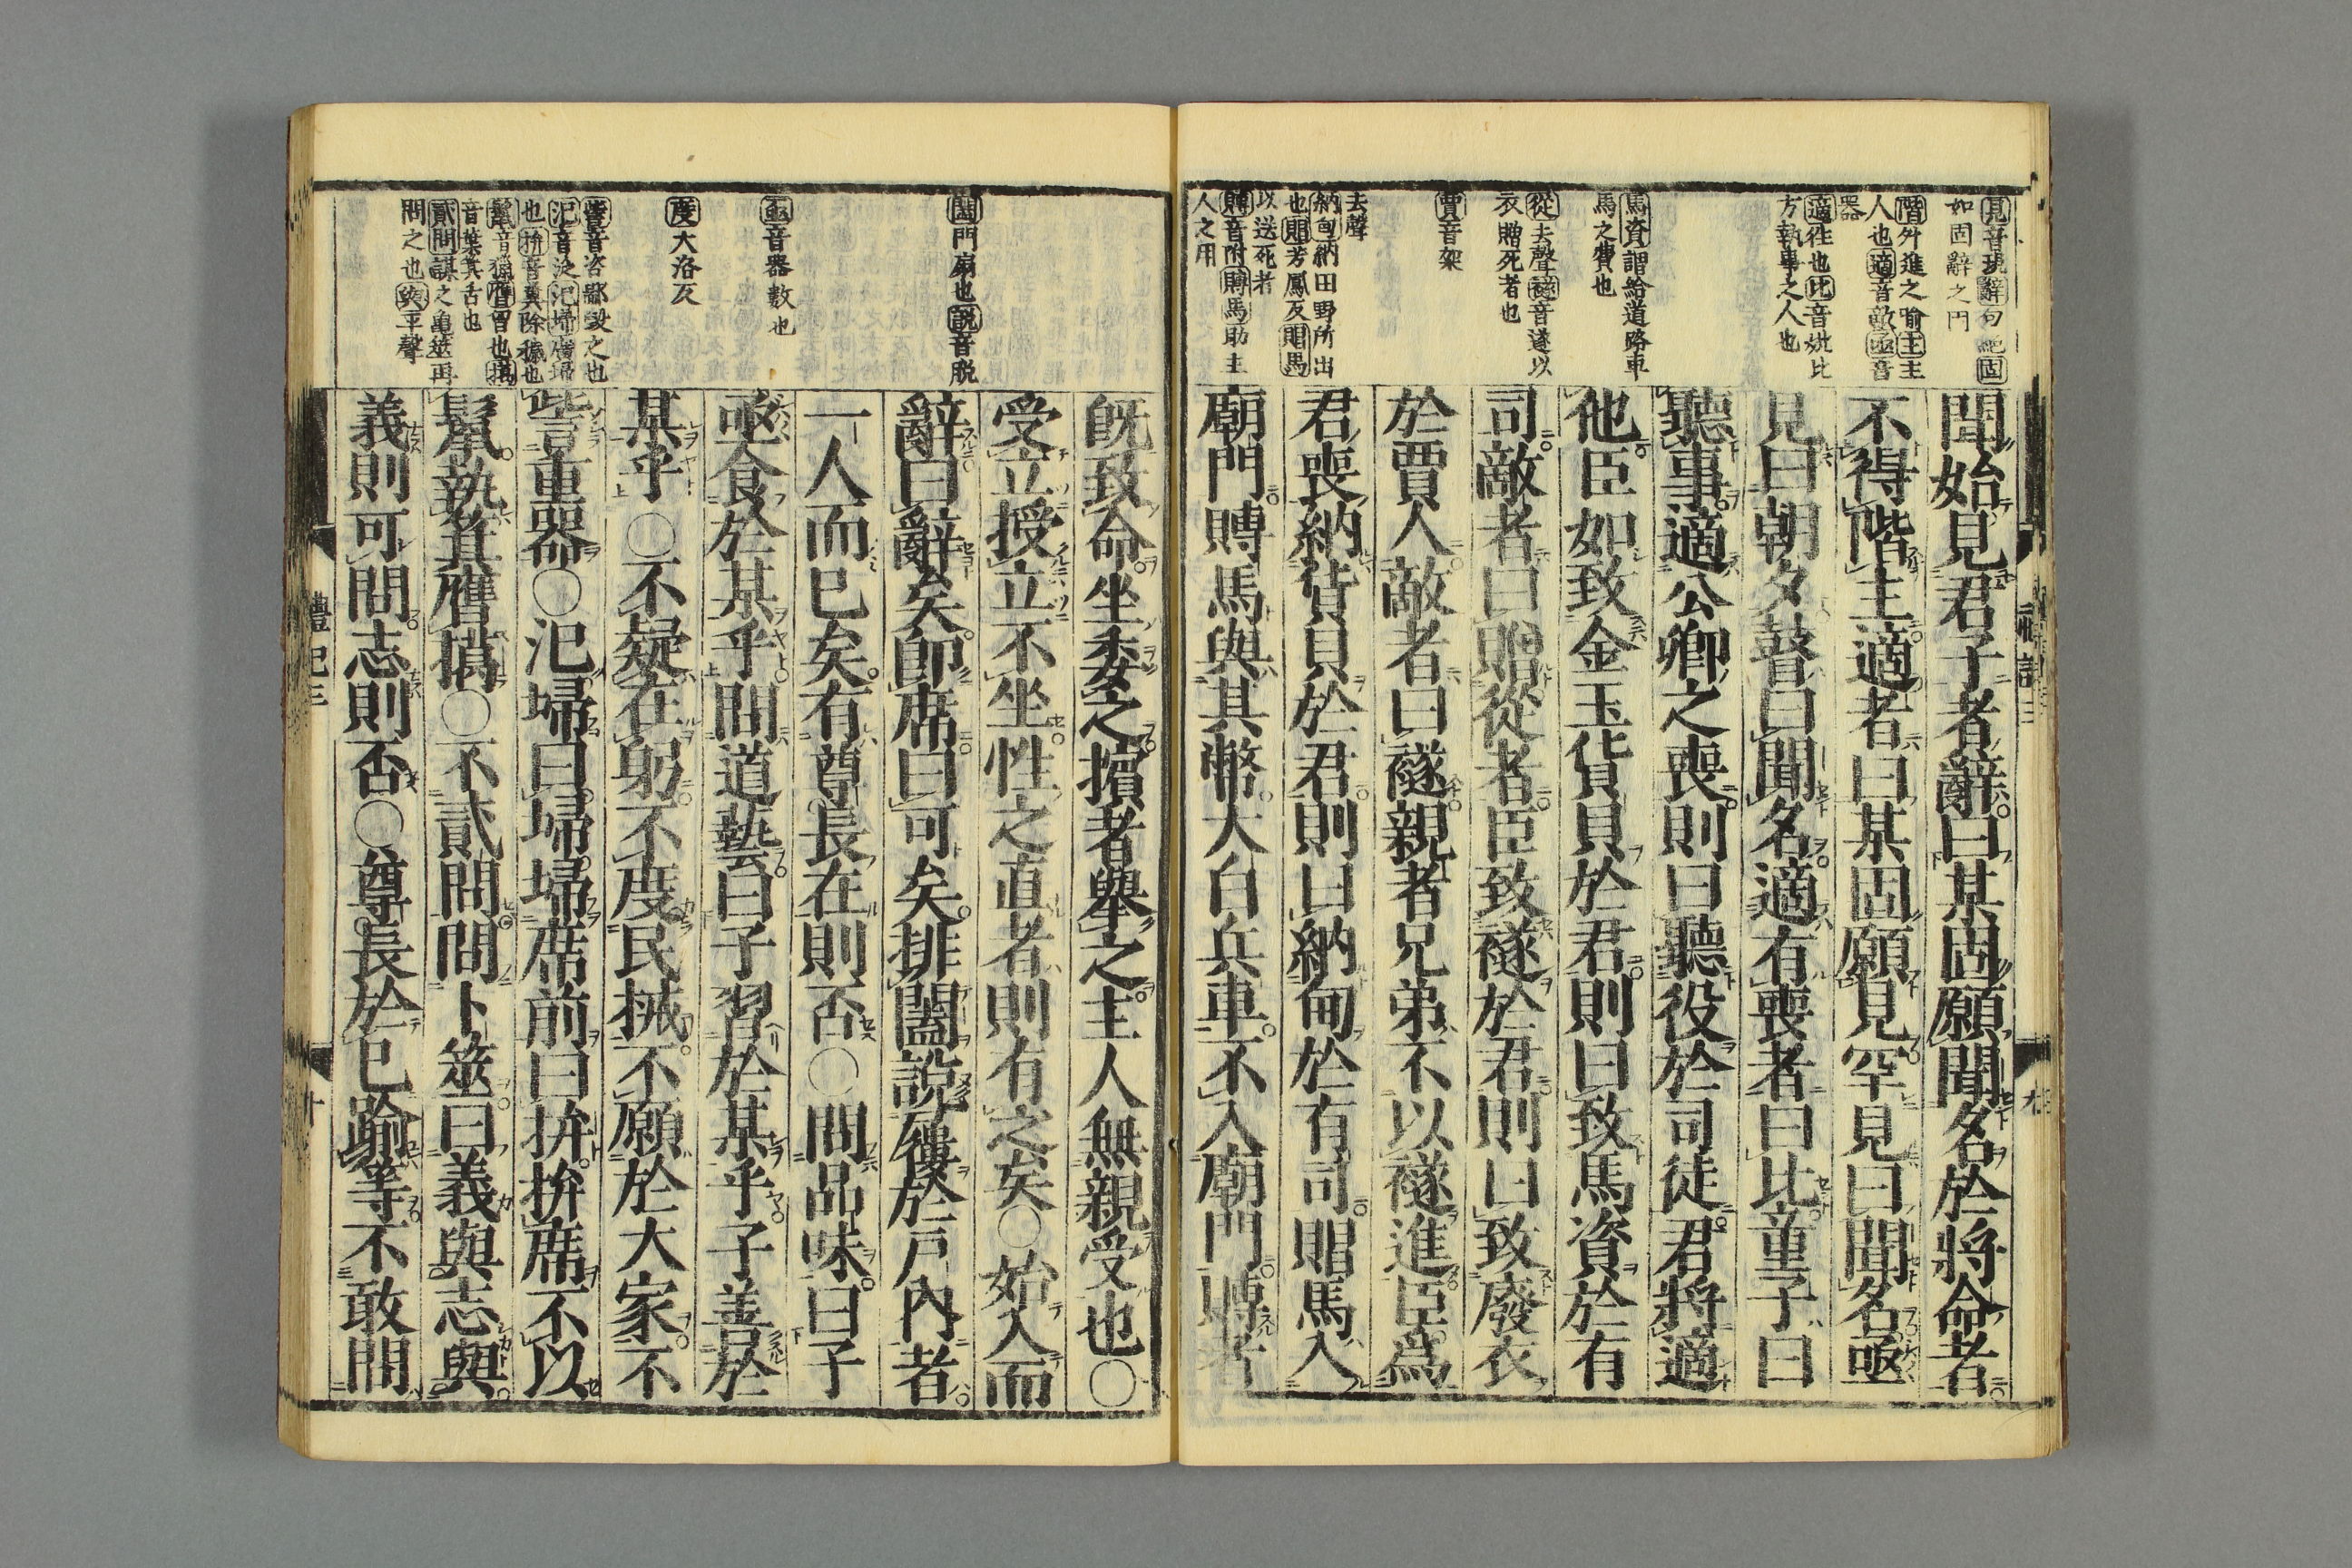 見音現辭句絶固
如固辭之固
階升進之喻主主
人也適音敵亟音
器
適往也比音妣比
方執事之人也
馬資謂給道路車
馬之費也
從去聲襚音遂以
衣贈死者也
賈音架
去聲
納甸納田野所出
也賵芳鳳反賵馬
以送死者
賻音附賻馬助主
人之用
聞始見君子者辭曰某固願聞名於將命者
不得階主適者曰某固願見罕見曰聞名亟
見曰朝夕瞽曰聞名適有喪者曰比童子曰
聽事適公卿之喪則曰聽役於司徒君將適
他臣如致金玉貨貝於君則曰致馬資於有
司敵者曰贈從者臣致襚於君則曰致廢衣
於賈人敵者曰襚親者兄弟不以襚進臣爲
君喪納貨貝於君則曰納甸於有司賵馬入
廟門賻馬與其幣大白兵車不入廟門賻者
禮記三
九
闔門扇也說音脫
亟音器數也
度大洛反
訾音咨鄙毀之也
氾音泛氾埽廣埽
也拚音糞除穢也
鬣音獵膺胷也擖
音葉箕舌也
貳問謀之龜筮再
問之也與平聲
既致命坐委之擯者舉之主人無親受也〇
受立授立不坐性之直者則有之矣〇始入而
辭曰辭矣即席曰可矣排闔說屨於戶內者
一人而已矣有尊長在則否〇問品味曰子
亟食於某乎問道藝曰子習於某乎子善於
某乎〇不疑在躬不度民械不願於大家不
訾重器〇氾埽曰埽埽席前曰拚拚席不以
鬣執箕膺擖〇不貳問問卜筮曰義與志與
義則可問志則否〇尊長於已踰等不敢問
禮記三
十